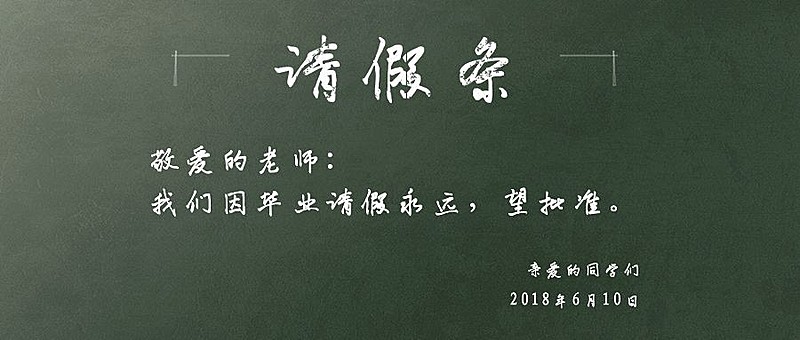 请假条
敬爱的老师：
我们因毕业请假永远，望批准。
亲爱的同学们
2018年6月10日